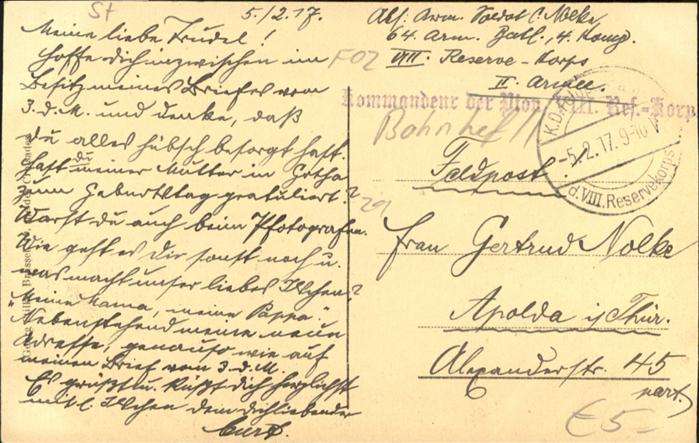 St
5./2.17.
Meine liebe Trudel!
Hoffe dich inzwischen im
Besitz meines Briefes vom
3. d. M. und denke, daß
du alles hübsch besorgt hast.
Hast du meiner Mutter in Gotha
zum Geburtstag gratuliert?
Warst du auch beim Pfotografen.
Wie geht es dir sonst noch u.
was macht unser liebes Ilschen?
"Meine Mama, meine Pappa."
Nebenstehend meine neue
Adresse, genauso wie auf
meinen Brief vom 3. d. M.
Es grüßt u. küßt dich herzlichst
mit l. Ilschen dein dichliebender
Curt.
Abs. Arm. Soldat C. Nolke,
64. Arm. Batl. 4. Komp.
VIII. Reserve-Korps
II. Armee.
Kommandeur der VIII. Res.-Korp
Bahnhof
K.D.
5.2.17. 9-10 V
d. VIII. Reservekorps
Feldpost!
Frau Gertrud Nolke
Apolda i/Thür.
Alexanderstr. 45
part.
£5-